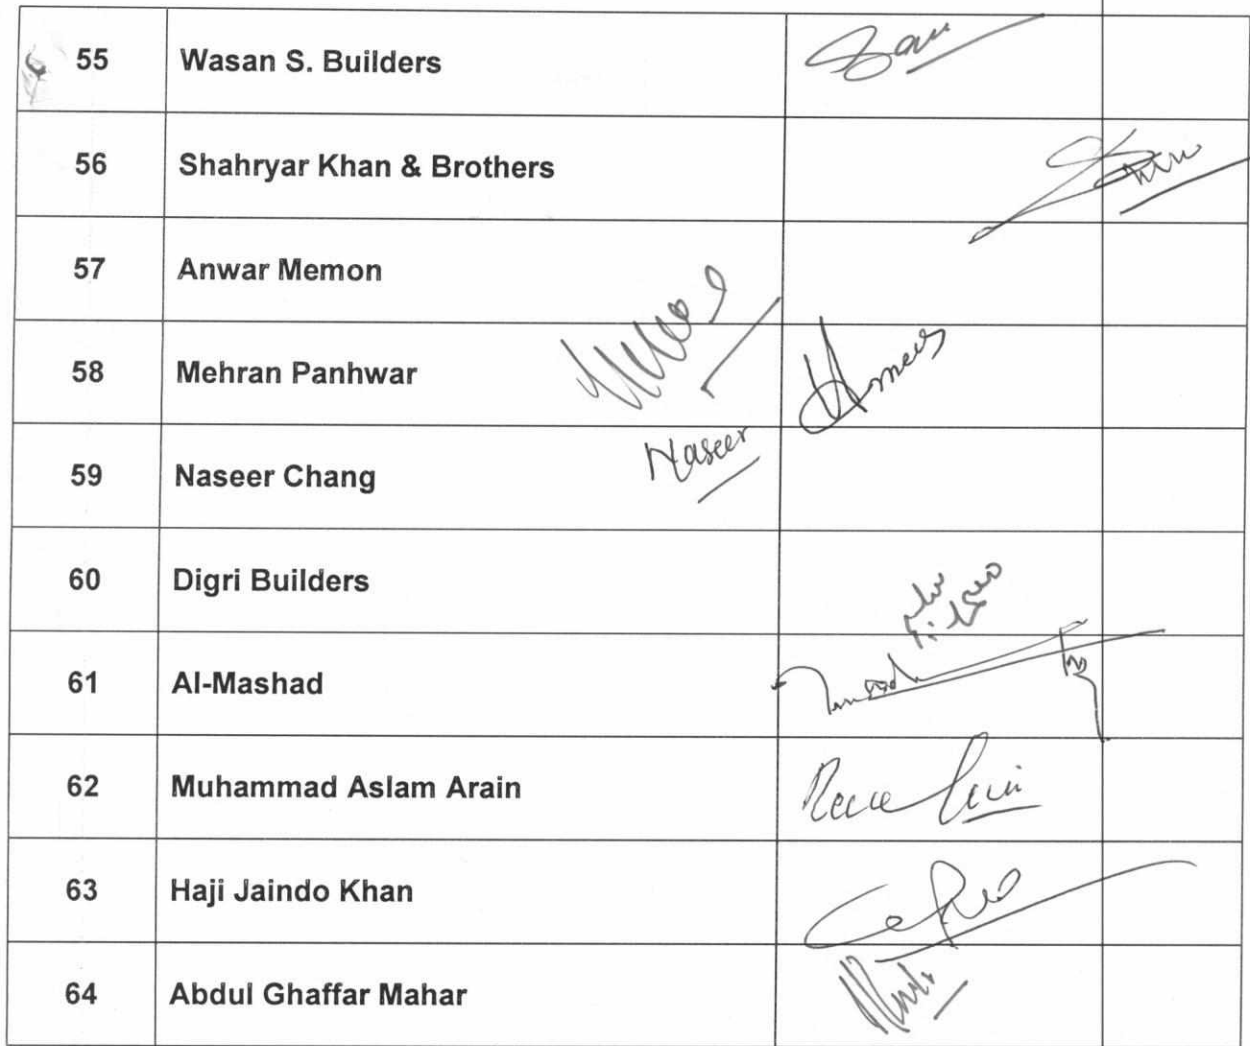 55 Wasan S. Builders
56 Shahryar Khan & Brothers
57 Anwar Memon
58 Mehran Panhwar
Naseer
59 Naseer Chang
60 Digri Builders
61 Al-Mashad
62 Muhammad Aslam Arain
63 Haji Jaindo Khan
64 Abdul Ghaffar Mahar